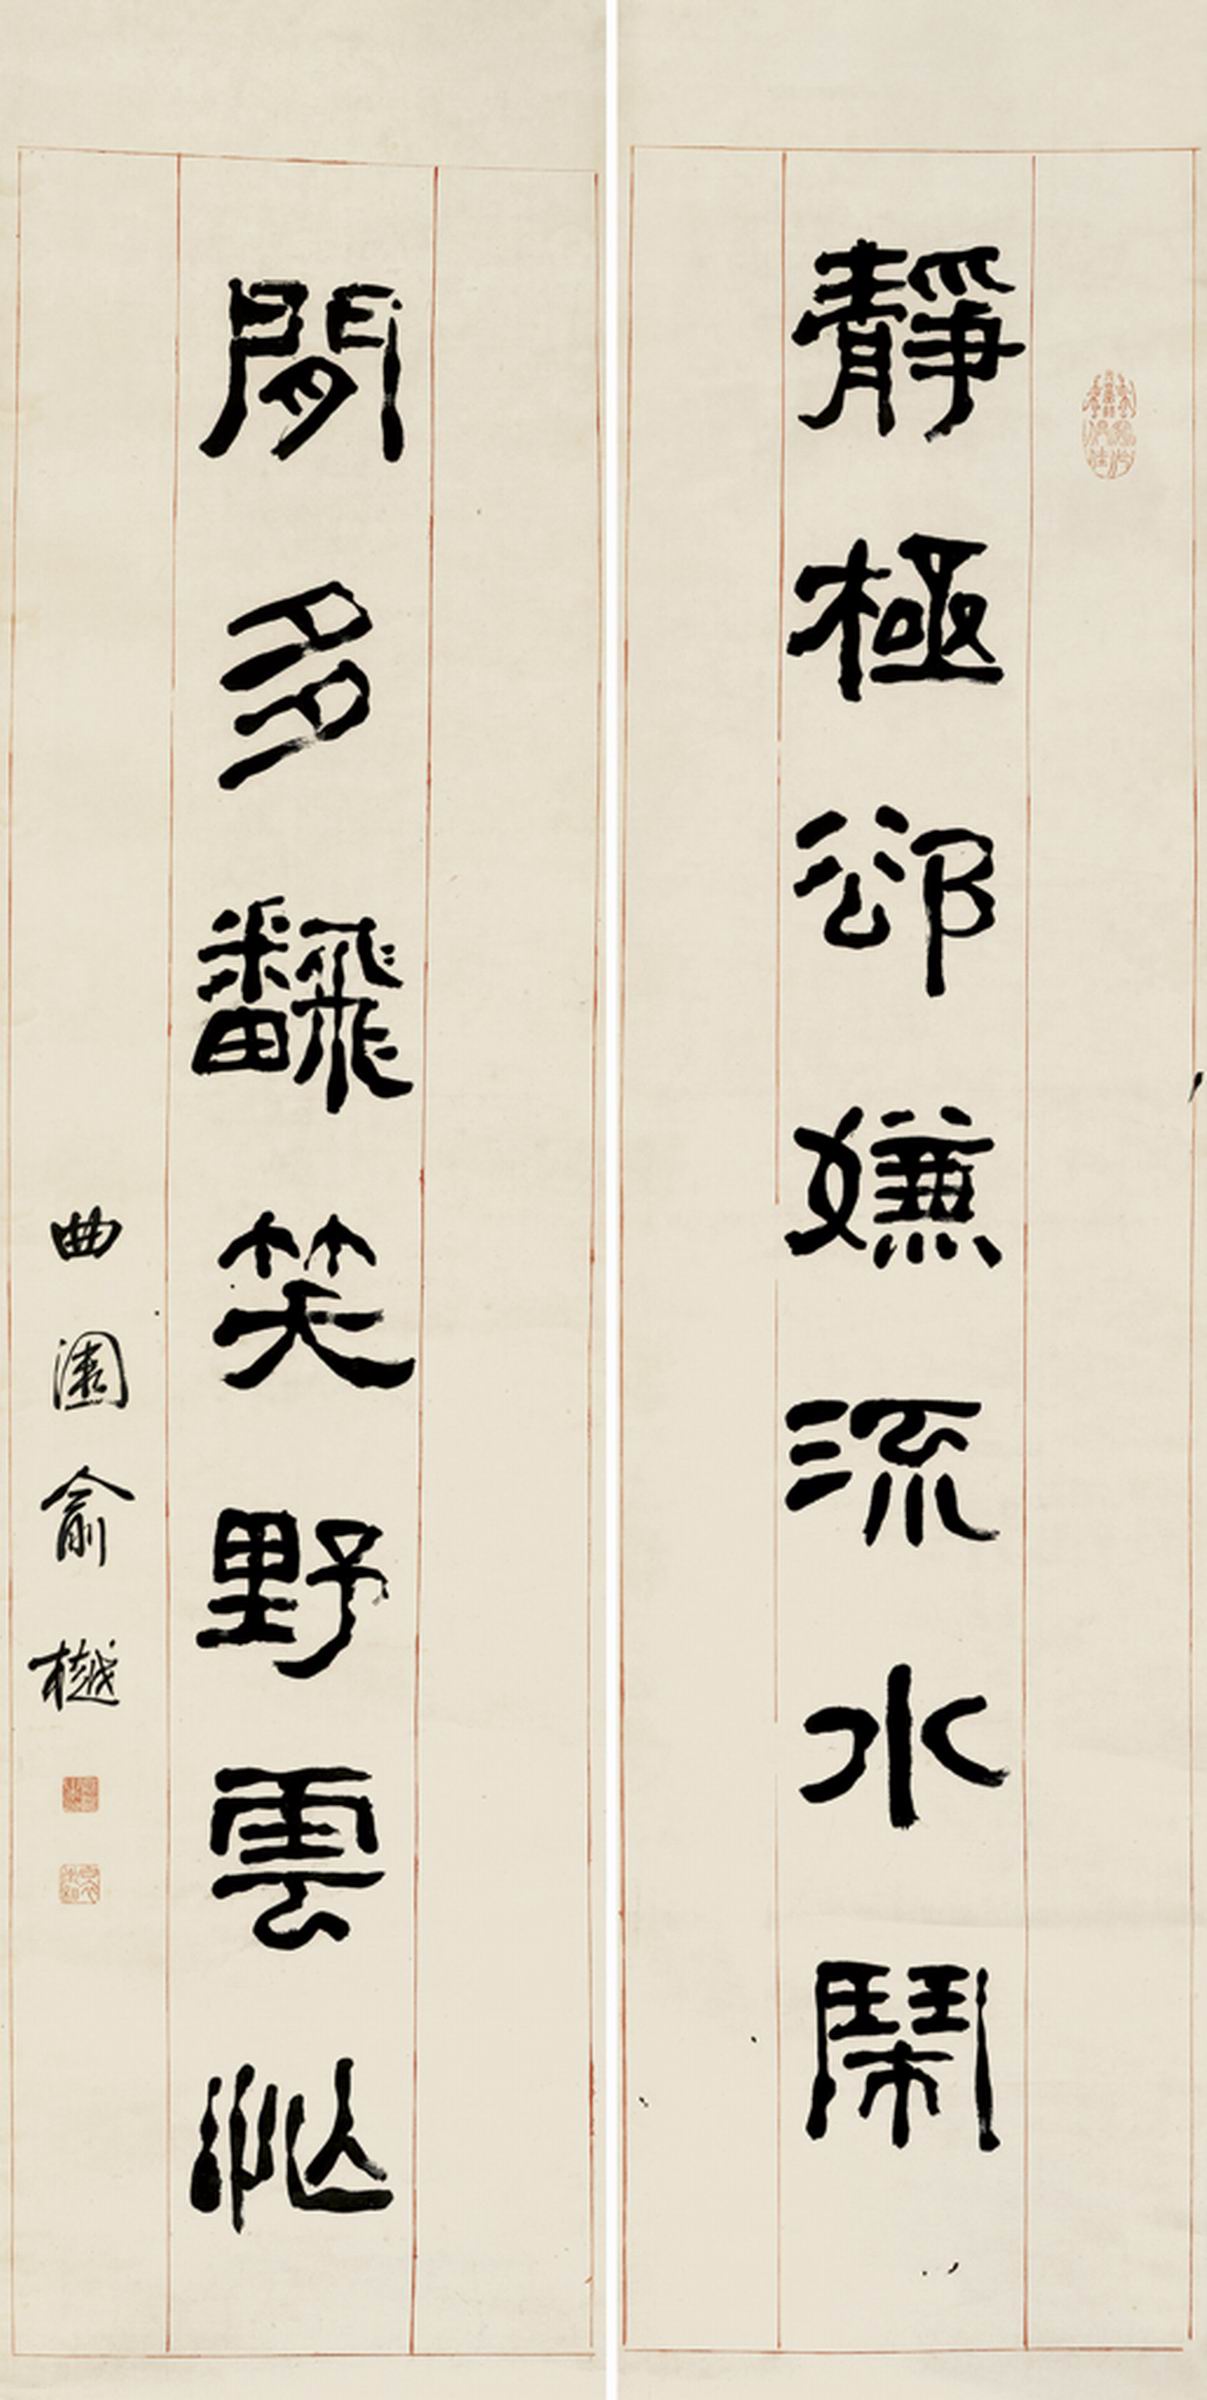 靜極卻嫌流水鬧
閒多飜笑野雲忙
曲園俞樾